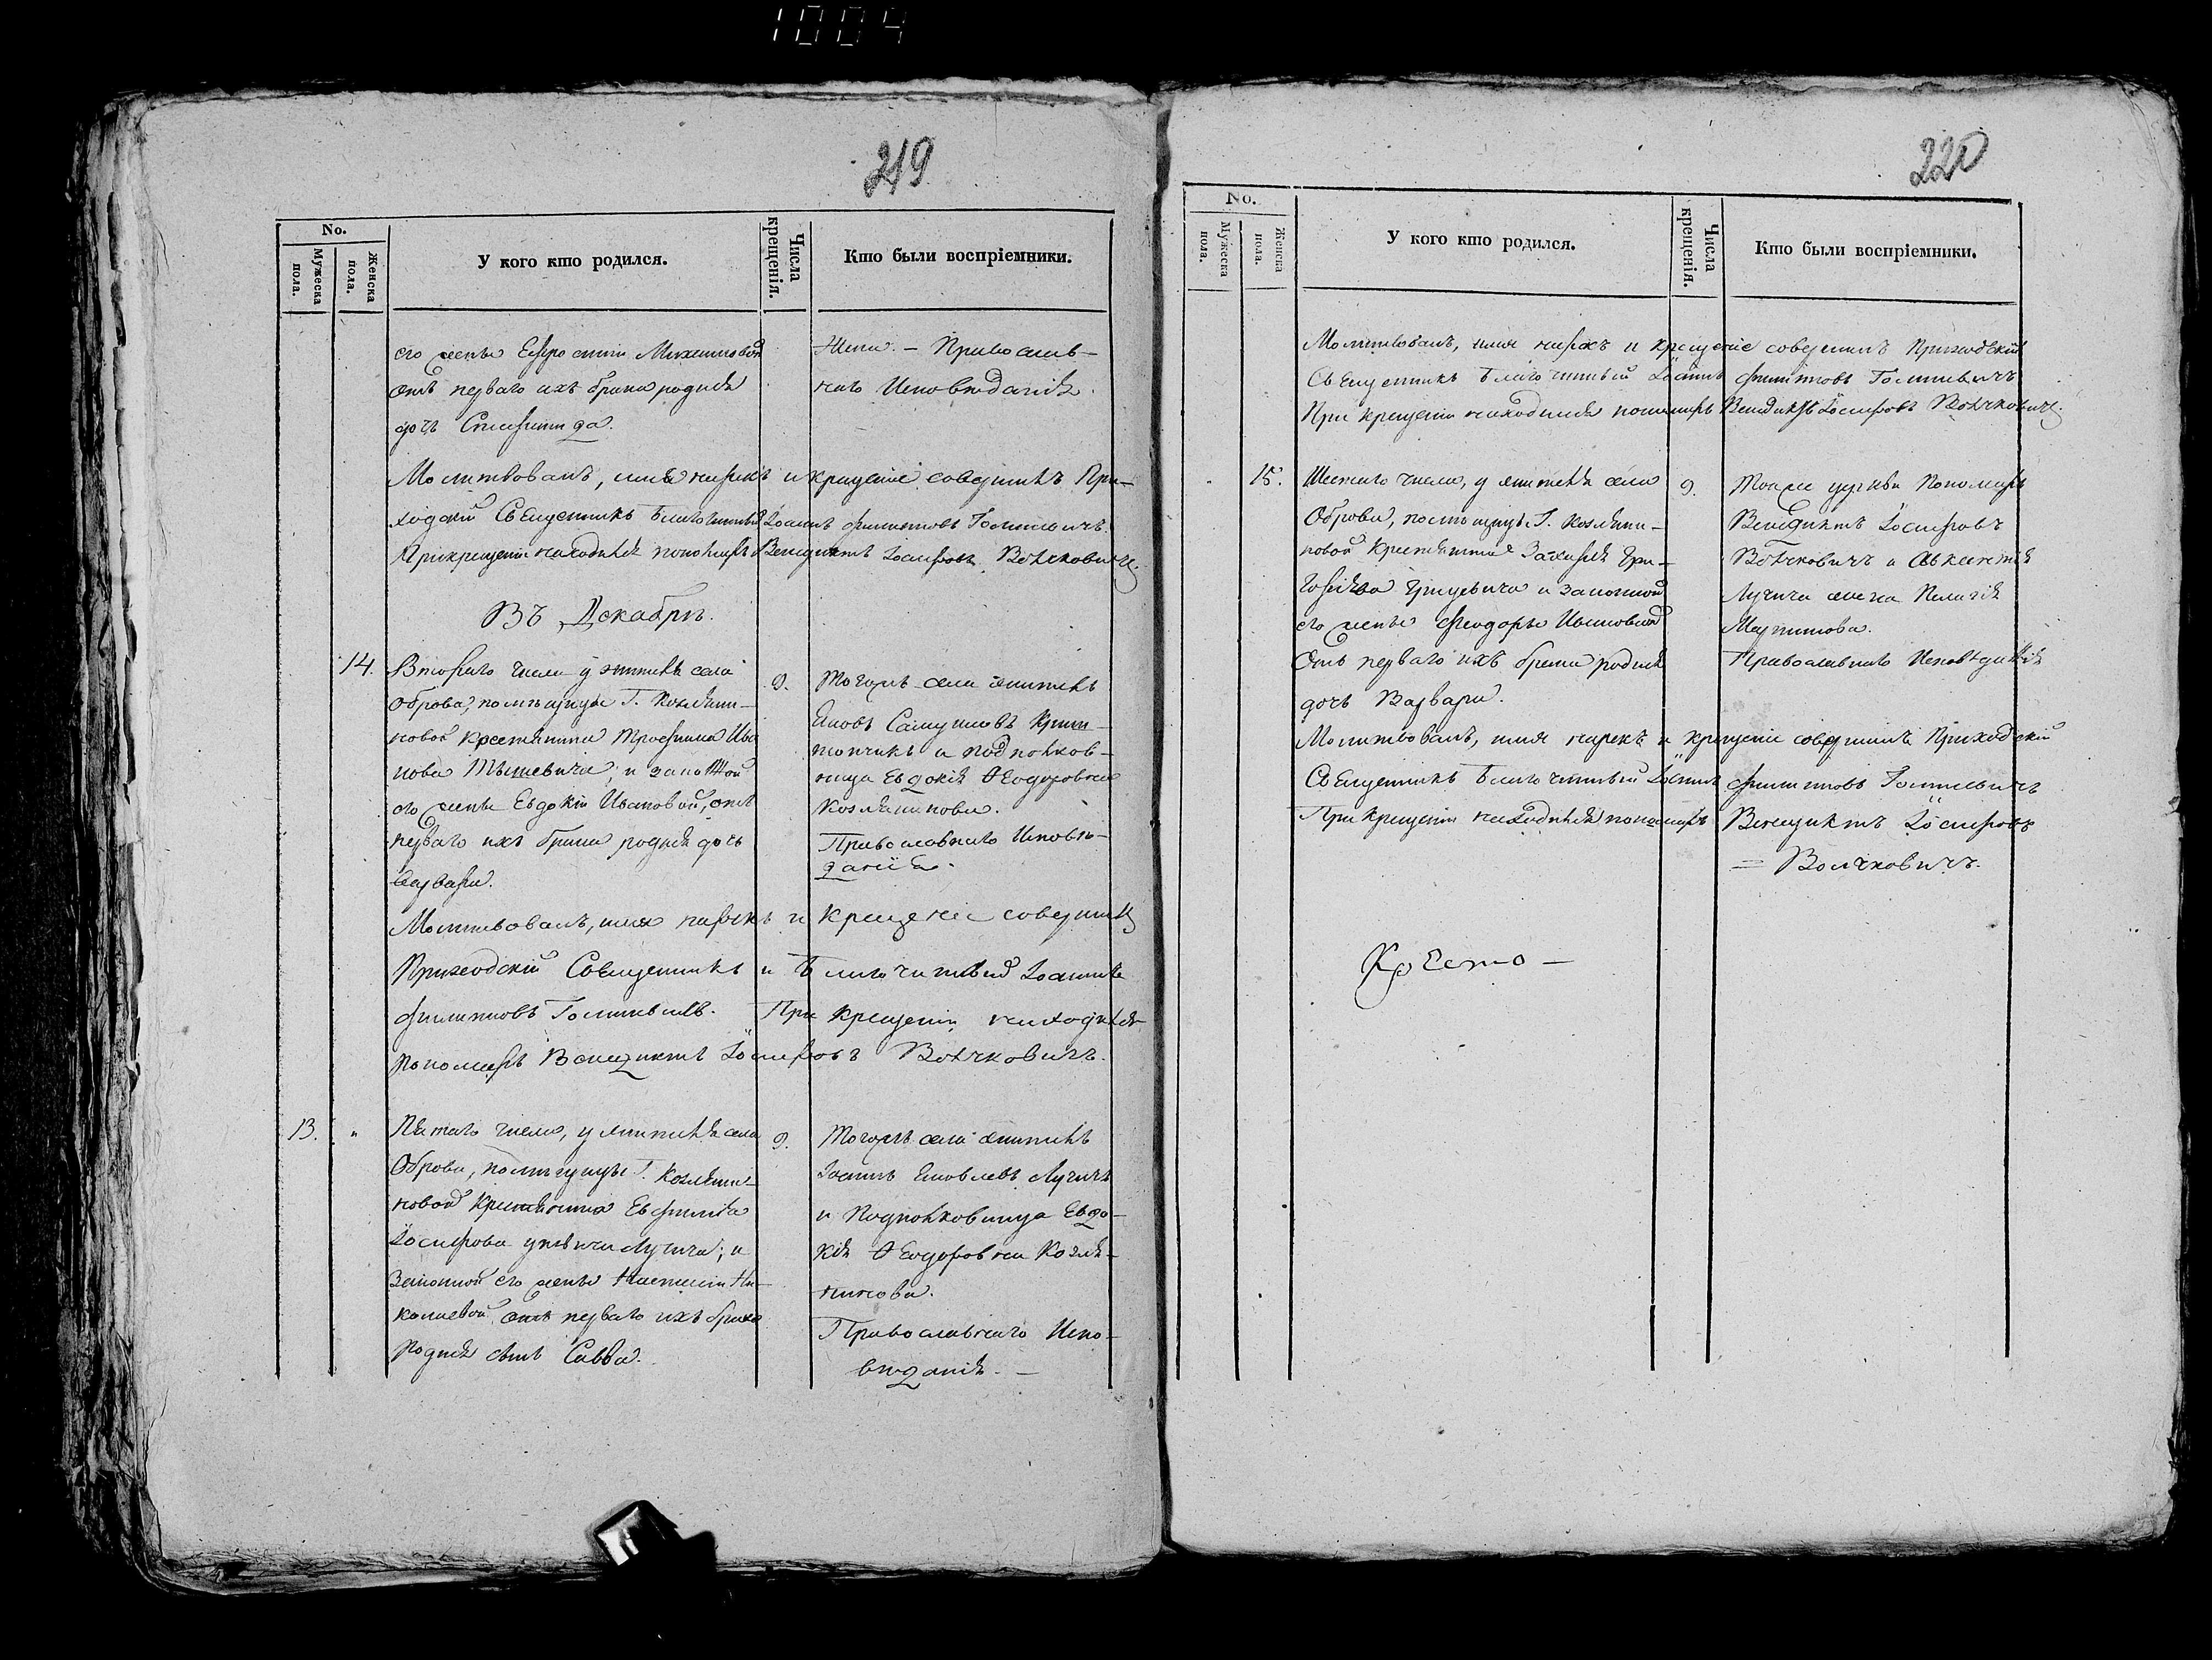 1004
219
No.
Мужеска пола.
Женска пола.
У кого кто родился.
Числа крещенія.
Кто были воспріемники.
его жены Ефросиніи
отъ перваго ихъ брака родися
дочь
Жена. – Православ-
наго Исповѣданія.
Молитвовалъ, имя нарекъ и крещеніе совершилъ При-
ходскій Священникъ Благочинный Іоаннъ Филиповъ
При крещеніи находился пономарь Венедиктъ Іосифовъ Волчковичъ.
Въ Декабрѣ.
14.
Втораго числа у жителя села
Оброва, помѣщицы Г. Козляни-
новой крестьянина Трофима Ива
нова и законной
его жены Евдокіи Ивановой, отъ
перваго ихъ брака родися дочь
Варвара.
9.
Тогожъ села житель
Яковъ Самуиловъ
и подполков-
ница Евдокія Ѳеодоровна
Козлянинова.
Православнаго Исповѣ-
данія.
Молитвовалъ, имя нарекъ и крещеніе совершилъ
Приходскій Священникъ и Благочинный Іоаннъ
Филиповъ При крещеніи находился
пономарь Венедиктъ Іосифовъ Волчковичъ.
13. "
Пятаго числа, у жителя села
Оброва, помѣщицы Г. Козляни-
новой крестьянина Евфимія
Іосифова Лучича; и
законной его жены Настасіи Ни-
колаевой отъ перваго ихъ брака
родися сынъ Савва.
9.
Тогожъ села житель
Іоаннъ Яковлевъ Лучичъ
и Подполковница Евдо-
кія Ѳеодоровна Козля-
нинова.
Православнаго Испо-
вѣданія. –
220
No.
Мужеска пола.
Женска пола.
У кого кто родился.
Числа крещенія.
Кто были воспріемники.
Молитвовалъ, имя нарекъ и крещеніе совершилъ Приходскій
Священникъ Благочинный Іоаннъ Филиповъ
При крещеніи находился пономарь Венедиктъ Іосифовъ Волчковичъ.
15.
Шестаго числа, у жителя села
Оброва, помѣщицы Г. Козляни-
новой крестьянина Захарія Гри-
горіева Грицевича и законной
его жены Феодоры Ивановной
отъ перваго ихъ брака родися
дочь Варвара.
9.
Тоя же церкви Пономарь
Венедиктъ Іосифовъ
Волчковичъ и
Лучича жена Пелагія
Мартинова.
Православнаго Исповѣданія
Молитвовалъ, имя нарекъ и крещеніе совершилъ Приходскій
Священникъ Благочинный Іоаннъ Филиповъ
При крещеніи находился пономарь Венедиктъ Іосифовъ
= Волчковичъ.